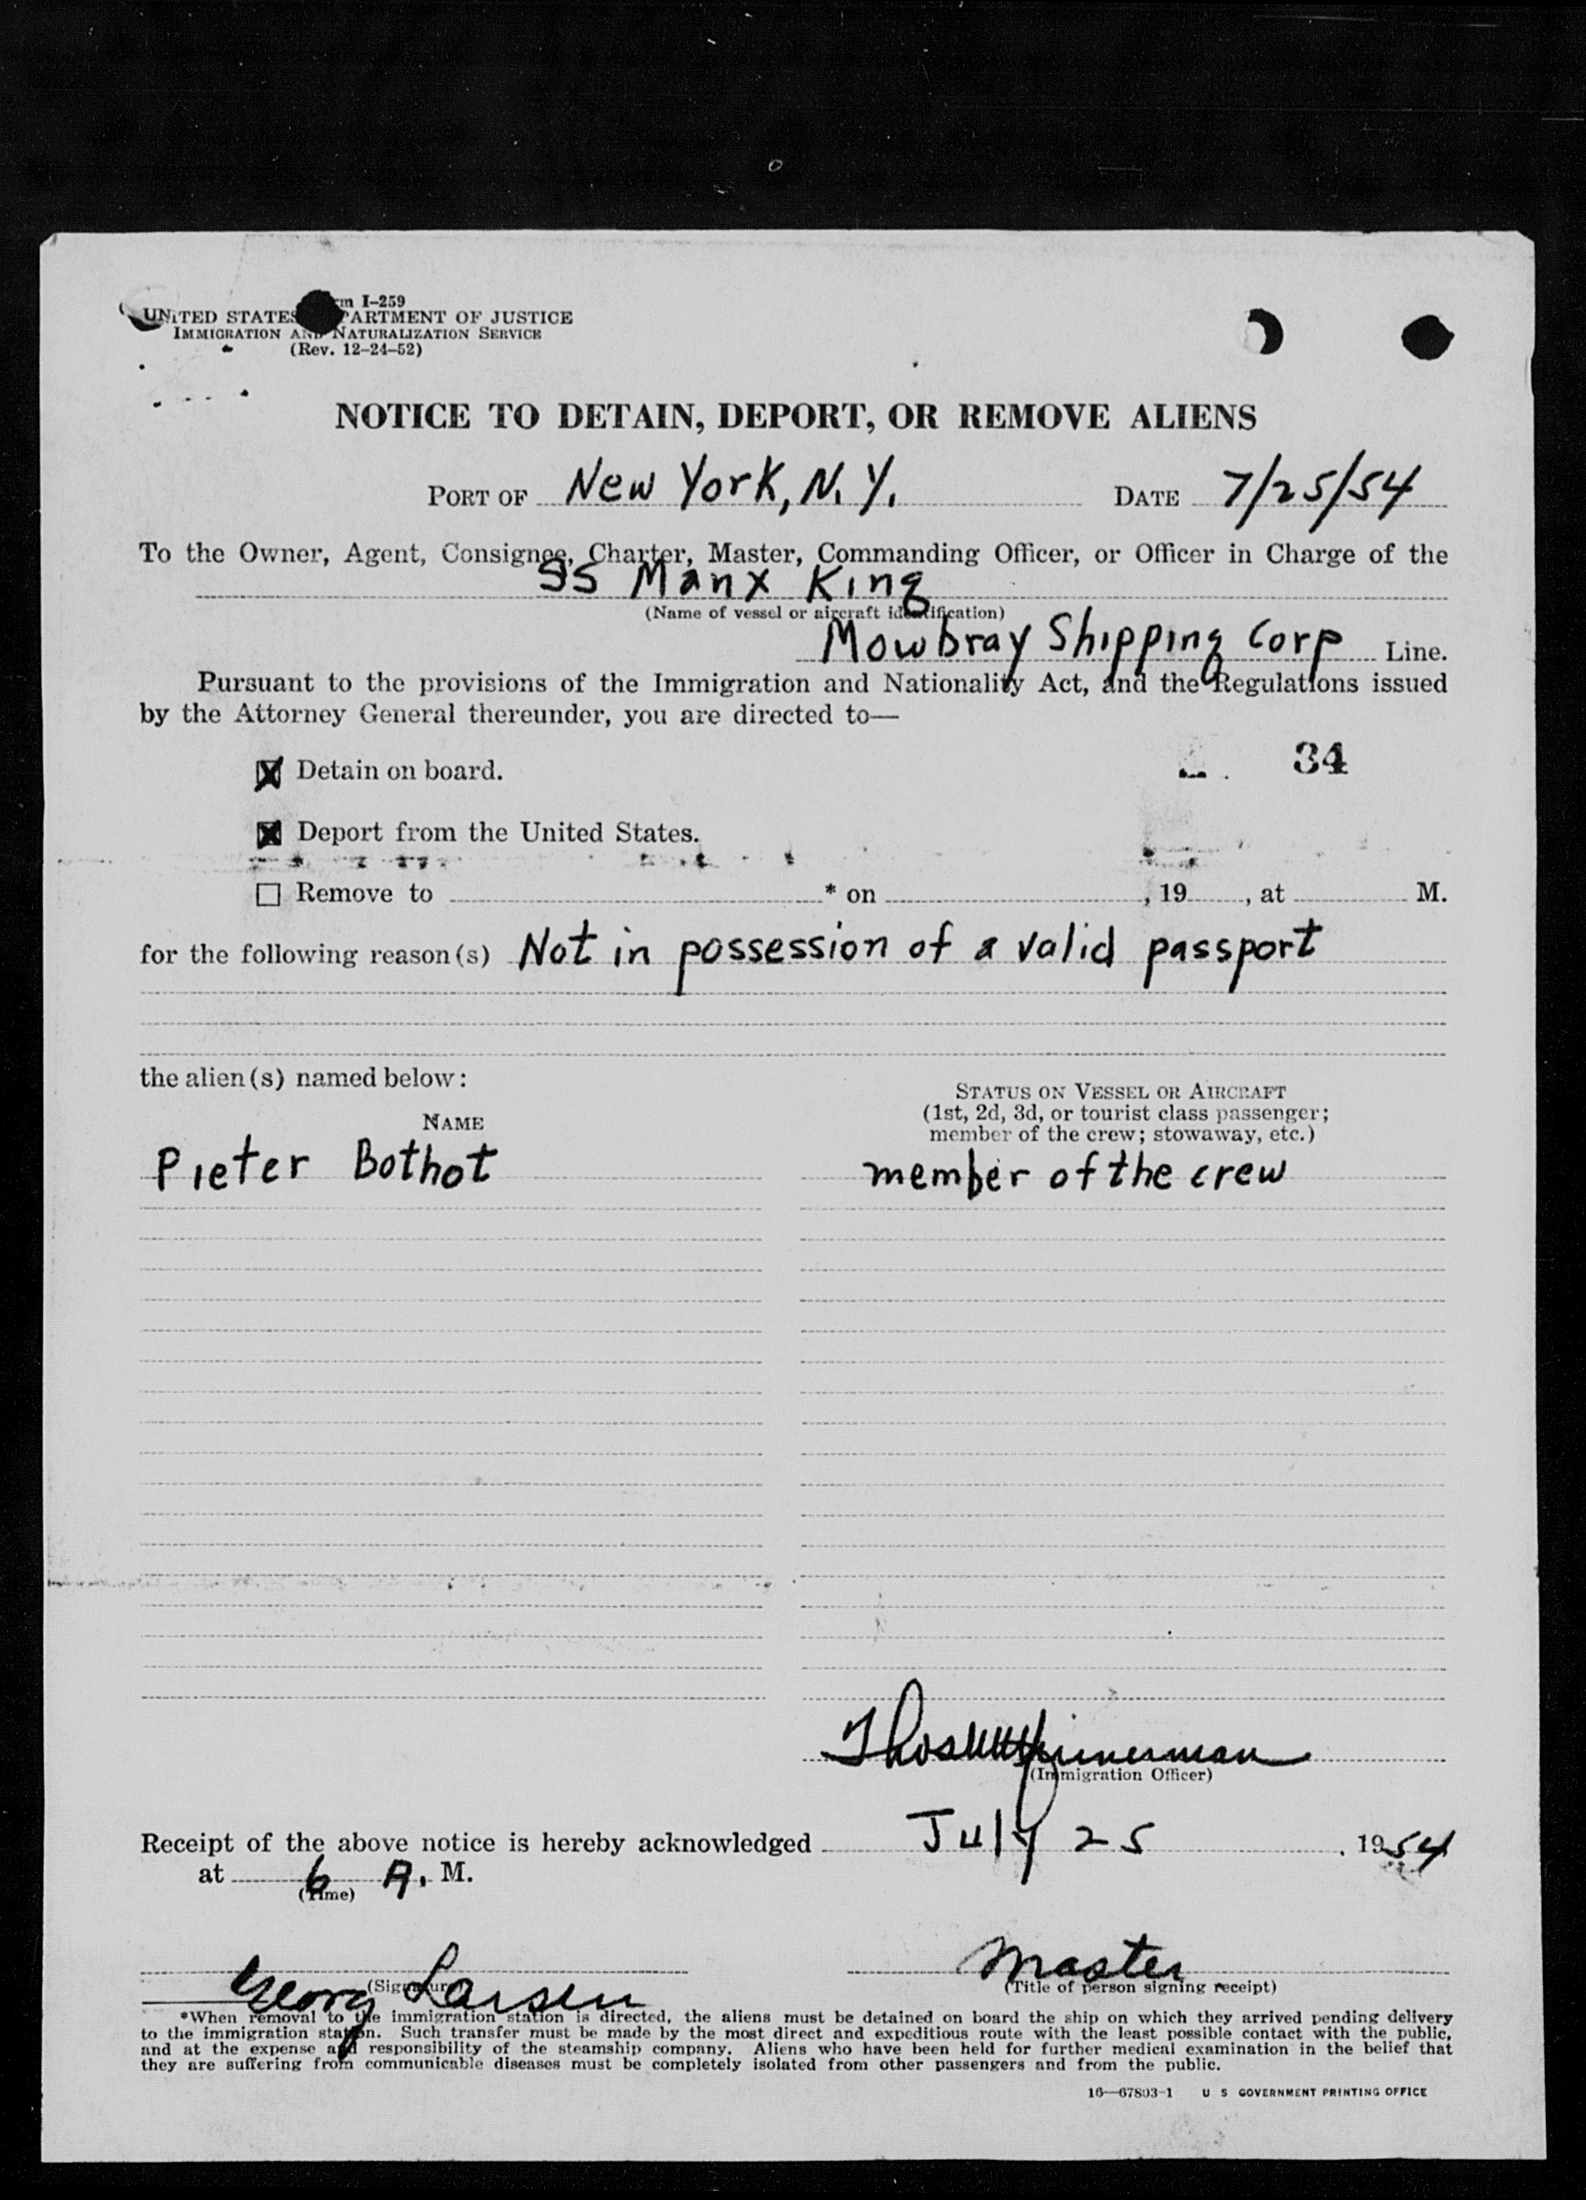 Form I-259
UNITED STATES DEPARTMENT OF JUSTICE
IMMIGRATION AND NATURALIZATION SERVICE
(Rev. 12-24-52)
NOTICE TO DETAIN, DEPORT, OR REMOVE ALIENS
PORT OF New York, N.Y. DATE 7/25/54
To the Owner, Agent, Consignee, Charter, Master, Commanding Officer, or Officer in Charge of the
SS Manx King
(Name of vessel or aircraft identification)
Mowbray Shipping Corp Line.
Pursuant to the provisions of the Immigration and Nationality Act, and the Regulations issued
by the Attorney General thereunder, you are directed to—
☒ Detain on board. 34
☒ Deport from the United States.
☐ Remove to * on , 19 , at M.
for the following reason(s) Not in possession of a valid passport
the alien(s) named below:
STATUS ON VESSEL OR AIRCRAFT
(1st, 2d, 3d, or tourist class passenger;
NAME
member of the crew; stowaway, etc.)
Pieter Bothot member of the crew
(Immigration Officer)
Receipt of the above notice is hereby acknowledged July 25 , 1954
at 6 A. M.
(Time)
Georg Larsen Master
(Signature) (Title of person signing receipt)
*When removal to the immigration station is directed, the aliens must be detained on board the ship on which they arrived pending delivery
to the immigration station. Such transfer must be made by the most direct and expeditious route with the least possible contact with the public,
and at the expense and responsibility of the steamship company. Aliens who have been held for further medical examination in the belief that
they are suffering from communicable diseases must be completely isolated from other passengers and from the public.
16—67803-1 U S GOVERNMENT PRINTING OFFICE